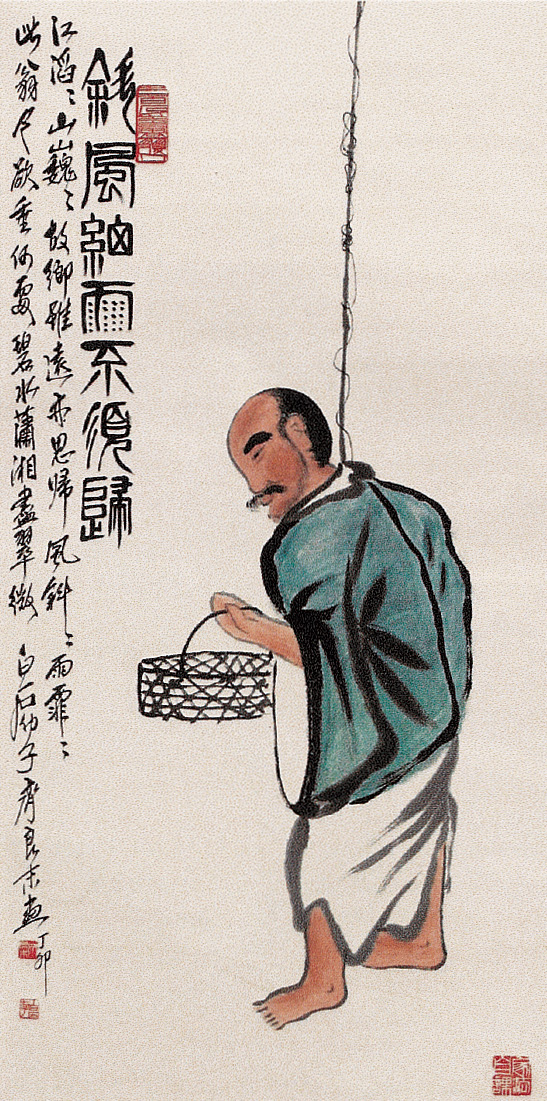 斜風細雨不須歸
江滔〻山巍〻故鄉雖遠亦思歸風斜〻雨霏〻
此翁欲垂何處碧水瀟湘盡翠微白石幼子齊良末畫丁卯